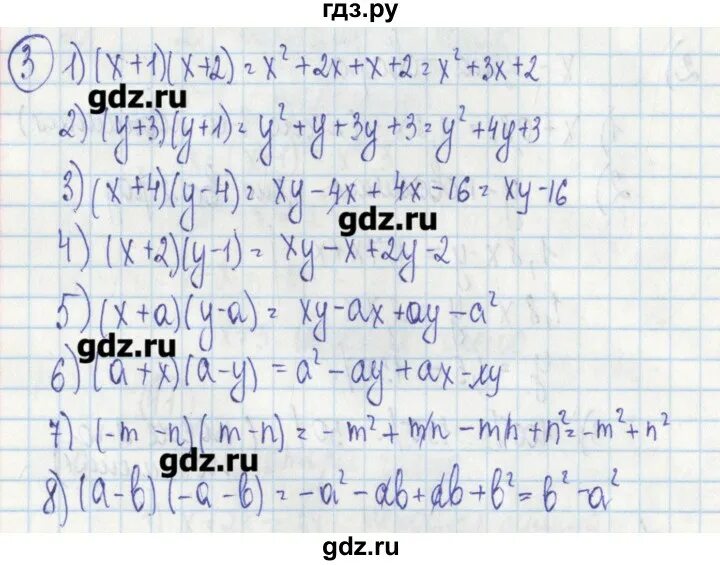 гдз.ру
3 1) (x+1)(x+2) = x² + 2x + x + 2 = x² + 3x + 2
gdz.ru
2) (y+3)(y+1) = y² + y + 3y + 3 = y² + 4y + 3
3) (x+4)(y-4) = xy - 4x + 4x - 16 = xy - 16
gdz.ru
4) (x+2)(y-1) = xy - x + 2y - 2
5) (x+a)(y-a) = xy - ax + ay - a²
gdz.ru
6) (a+x)(a-y) = a² - ay + ax - xy
7) (-m-n)(m-n) = -m² + mn - mn + n² = -m² + n²
gdz.ru
8) (a-b)(-a-b) = -a² - ab + ab + b² = b² - a²
gdz.ru